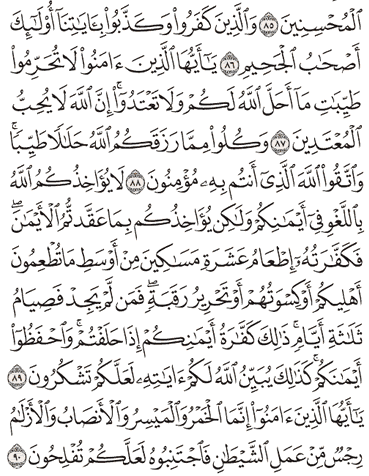 ٱلْمُحْسِنِينَ ٨٥ وَٱلَّذِينَ كَفَرُوا۟ وَكَذَّبُوا۟ بِـَٔايَـٰتِنَآ أُو۟لَـٰٓئِكَ
أَصْحَـٰبُ ٱلْجَحِيمِ ٨٦ يَـٰٓأَيُّهَا ٱلَّذِينَ ءَامَنُوا۟ لَا تُحَرِّمُوا۟
طَيِّبَـٰتِ مَآ أَحَلَّ ٱللَّهُ لَكُمْ وَلَا تَعْتَدُوٓا۟ ۚ إِنَّ ٱللَّهَ لَا يُحِبُّ
ٱلْمُعْتَدِينَ ٨٧ وَكُلُوا۟ مِمَّا رَزَقَكُمُ ٱللَّهُ حَلَـٰلًا طَيِّبًا ۚ
وَٱتَّقُوا۟ ٱللَّهَ ٱلَّذِىٓ أَنتُم بِهِۦ مُؤْمِنُونَ ٨٨ لَا يُؤَاخِذُكُمُ ٱللَّهُ
بِٱللَّغْوِ فِىٓ أَيْمَـٰنِكُمْ وَلَـٰكِن يُؤَاخِذُكُم بِمَا عَقَّدتُّمُ ٱلْأَيْمَـٰنَ ۖ
فَكَفَّـٰرَتُهُۥٓ إِطْعَامُ عَشَرَةِ مَسَـٰكِينَ مِنْ أَوْسَطِ مَا تُطْعِمُونَ
أَهْلِيكُمْ أَوْ كِسْوَتُهُمْ أَوْ تَحْرِيرُ رَقَبَةٍ ۖ فَمَن لَّمْ يَجِدْ فَصِيَامُ
ثَلَـٰثَةِ أَيَّامٍ ۚ ذَٰلِكَ كَفَّـٰرَةُ أَيْمَـٰنِكُمْ إِذَا حَلَفْتُمْ ۚ وَٱحْفَظُوٓا۟
أَيْمَـٰنَكُمْ ۚ كَذَٰلِكَ يُبَيِّنُ ٱللَّهُ لَكُمْ ءَايَـٰتِهِۦ لَعَلَّكُمْ تَشْكُرُونَ ٨٩
يَـٰٓأَيُّهَا ٱلَّذِينَ ءَامَنُوٓا۟ إِنَّمَا ٱلْخَمْرُ وَٱلْمَيْسِرُ وَٱلْأَنصَابُ وَٱلْأَزْلَـٰمُ
رِجْسٌ مِّنْ عَمَلِ ٱلشَّيْطَـٰنِ فَٱجْتَنِبُوهُ لَعَلَّكُمْ تُفْلِحُونَ ٩٠